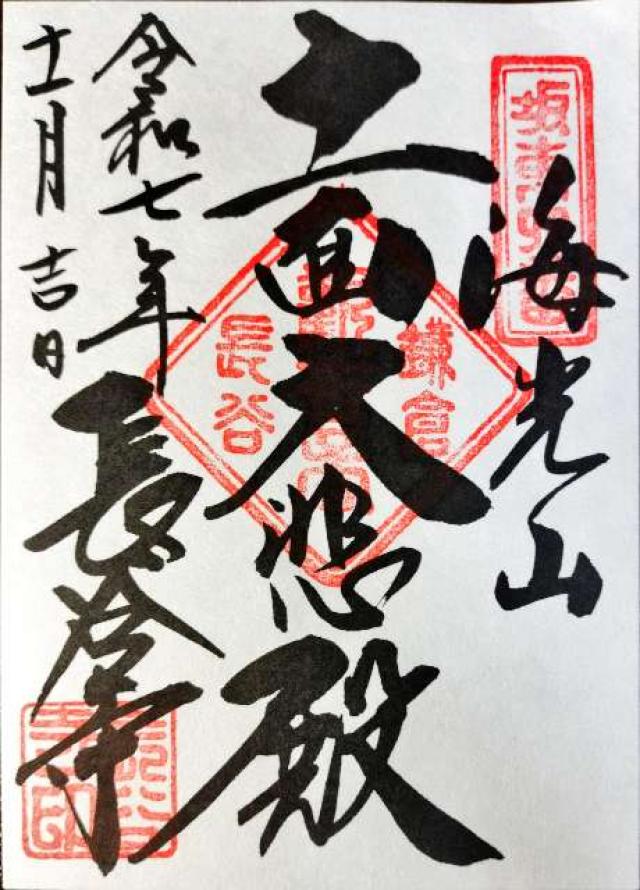 坂東第四番
海光山
十一面大悲殿
鎌倉
長谷
令和七年
十二月吉日
長谷寺